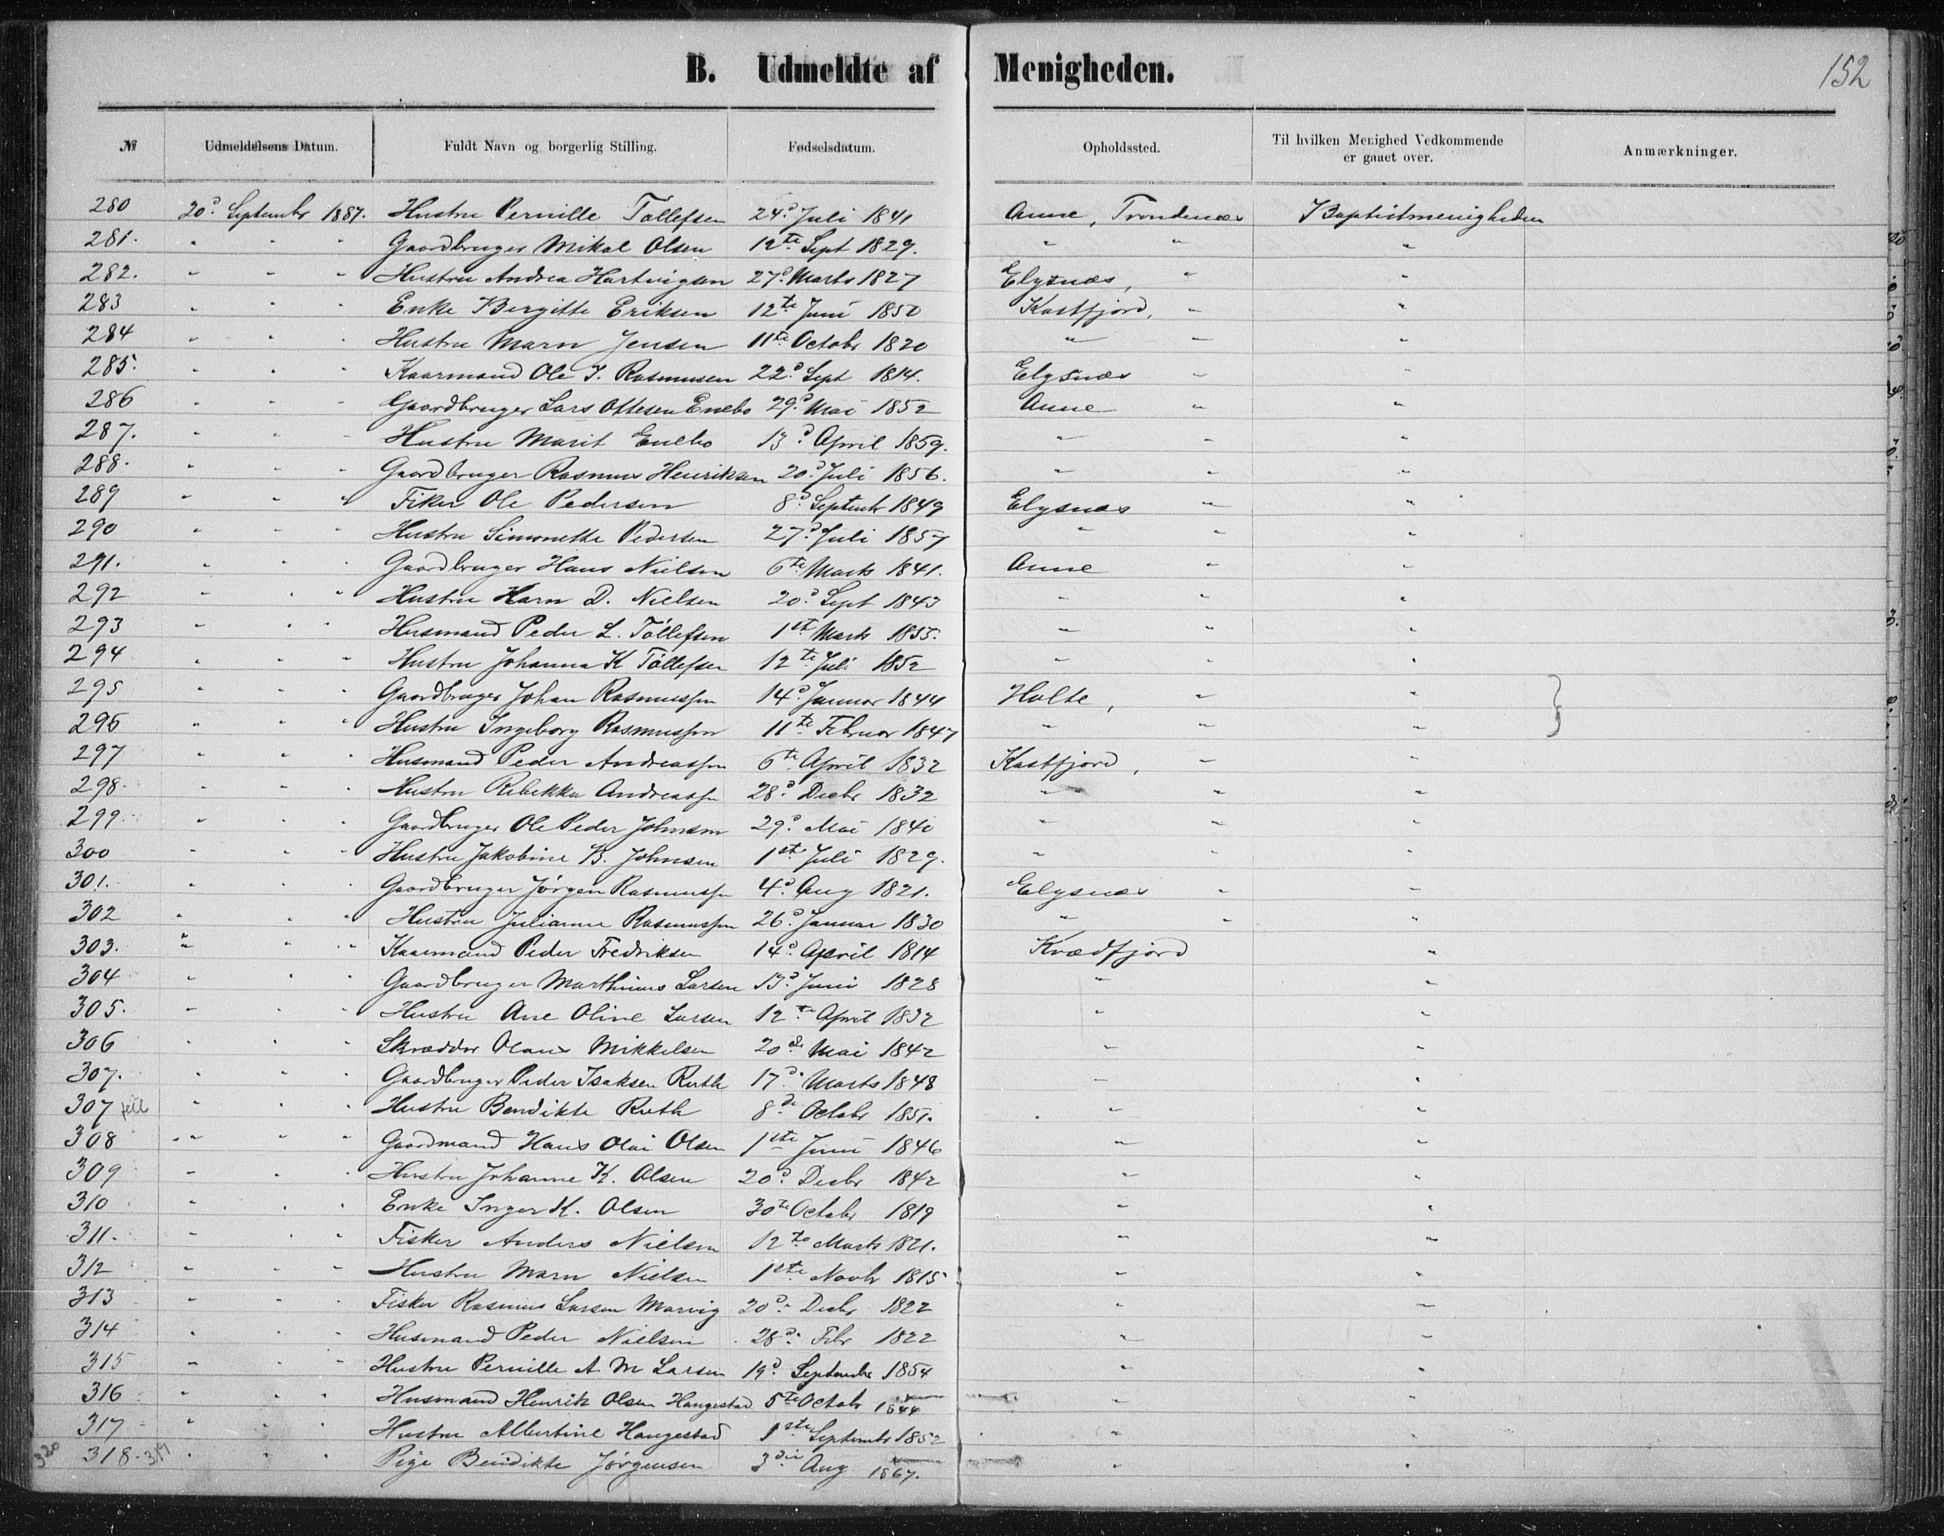 152
B. Udmeldte af Menigheden.
№ Udmeldelsens Datum. Fuldt Navn og borgerlig Stilling. Fødselsdatum. Opholdssted. Til hvilken Menighed Vedkommende er gaaet over. Anmærkninger.
280 20d September 1887. Hustru Pernille Tøllefsen 24d Juli 1841 Aune, Trondenæs Baptistmenigheden
281. " " " Gaardbruger Mikal Olsen 12te Sept 1829. " " "
282. " " " Hustru Andrea Hartvigsen 27d Marts 1827 Elgsnæs, " "
283 " " " Enke Bergitte Eriksen 12te Juni 1850 Kastfjord, " "
284 " " " Hustru Marn Jensen 11te Octobr 1820 " " "
285. " " " Kaarmand Ole J. Rasmusen 22d Sept 1814. Elgsnæs " "
286 " " " Gaardbruger Lars Ottesen Enebo 29d Mai 1852 Aune " "
287. " " " Hustru Marit Enebo 13d April 1859. " " "
288. " " " Gaardbruger Rasmus Henriksen 20d Juli 1856. " " "
289 " " " Fiker Ole Pedersen 8d Septembr 1849 Elgsnæs " "
290 " " " Hustru Simonette Pedersen 27d Juli 1857 " " "
291. " " " Gaardbruger Hans Nielsen 6te Marts 1841. Aune " "
292 " " " Hustru Karn D. Nielsen 20d Sept 1843 " " "
293 " " " Husmand Peder L. Tøllefsen 1st Marts 1855. " " "
294 " " " Hustru Johanna K Tøllefsen 12te Juli 1852 " " "
295 " " " Gaardbruger Johan Rasmussen 14d Januar 1844 Holte, " "
296 " " " Hustru Ingeborg Rasmussen 11te Februar 1847 " " "
297 " " " Husmand Peder Andreassen 6te April 1832 Kastfjord, " "
298. " " " Hustru Rebekka Andreassen 28d Decbr 1832 " " "
299. " " " Gaardbruger Ole Peder Johnsen 29d Mai 1840 " " "
300 " " " Hustru Jakobine B. Johnsen 1st Juli 1829. " " "
301. " " " Gaardbruger Jørgen Rasmussen 4d Aug 1821. Elgsnæs " "
302 " " " Hustru Julianne Rasmussen 26d Januar 1830 " " "
303. " " " Kaarmand Peder Fredriksen 14d April 1814 Kvædfjord "
304 " " " Gaardbruger Marthinus Larsen 13d Juni 1828 " "
305. " " " Hustru Ane Oline Larsen 12te April 1832 " "
306 " " " Skrædder Olaus Mikkelsen 20de Mai 1842 " "
307. " " " Gaardbruger Peder Isaksen Ruth 17d Marts 1848 " "
307 feil " " " Hustru Bendikte Ruth 8de Octobr 1851. " "
308 " " " Gaardmand Hans Olai Olsen 1ste Juni 1846 " "
309 " " " Hustru Johanne K. Olsen 20d Decbr 1842 " "
310 " " " Enke Inger K. Olsen 30te Octobr 1819 " "
311. " " " Fisker Anders Nielsen 12te Marts 1821. " "
312 " " " Hustru Marn Nielsen 1ste Novbr 1815 " "
313 " " " Fisker Rasmus Larsen Marvig 20d Decbr 1822 " "
314 " " " Husmand Peder Nielsen 28d Febr 1822 " "
315 " " " Hustru Pernille A. M Larsen 19d September 1854 " "
316 " " " Husmand Henrik Olsen Haugestad 5te Octobr 1844 " "
317 " " " Hustru Albertine Haugestad 1ste Septembr 1852 " "
320 318. 319 " " " Pige Bendikte Jørgensen 3die Aug 1867. " "